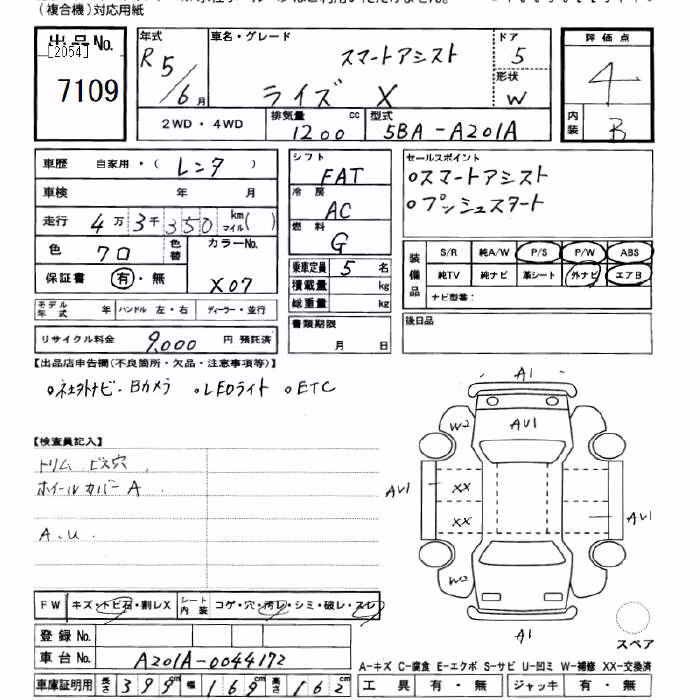 (複合機)対応用紙
出品No.
[2054]
7109
年式
R5/6月
車名・グレード
スマートアシスト
ライズ X
ドア
5
形状
W
評価点
4
内装
B
2WD・4WD
排気量 cc
1200
型式
5BA-A201A
車歴 自家用・(レンタ)
車検 年 月
走行 4万3千350 km マイル( )
色 クロ
色替
カラーNo.
X07
保証書 有・無
モデル年式 年
ハンドル 左・右
ディーラー・並行
リサイクル料金 9,000 円 預託済
シフト
FAT
冷房
AC
燃料
G
乗車定員 5 名
積載量 kg
総重量 kg
書類期限
月 日
セールスポイント
○スマートアシスト
○プッシュスタート
装備品
S/R 純A/W P/S P/W ABS
純TV 純ナビ 革シート 外ナビ エアB
ナビ型番:
後日品
【出品店申告欄(不良箇所・欠品・注意事項等)】
○社外ナビ・Bカメラ ○LEDライト ○ETC
【検査員記入】
トリム ビス穴
ホイールカバーA
A.U
A1
W2
AU1
AU1
XX
XX
AU1
A1
スペア
FW キズ・トビ石・割レX
シート内装 コゲ・穴・汚レ・シミ・破レ・スレ
登録No.
車台No. A201A-0044172
車庫証明用 長さ 399cm 幅 169cm 高さ 162cm
A-キズ C-腐食 E-エクボ S-サビ U-凹ミ W-補修 XX-交換済
工具 有・無 ジャッキ 有・無